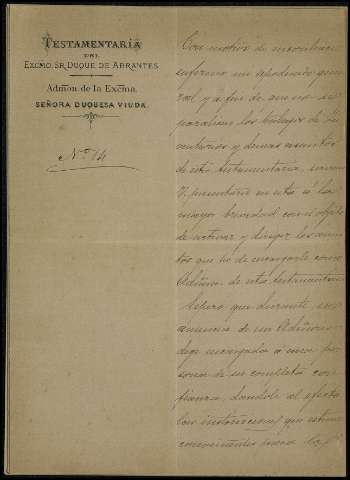 TESTAMENTARÍA
DEL
EXCMO. SR. DUQUE DE ABRANTES
Admon de la Excma.
SEÑORA DUQUESA VIUDA
Nº 14
Con motivo de encontrarse
enfermo mi apoderado gene
ral, y a fin de que no se
paralicen los trabajos de In
ventarios y demas asuntos
de esta testamentaria,
V. presentarse en esta á la
mayor brevedad con el objeto
de activar y dirigir los asun
tos que ha de encargarle como
Admor. de esta testamentaria
Espero que durante su
ausencia de un Admor.
deje encargada á una per
sona de su completa con
fianza, dandole al efecto
las instrucciones que estime
convenientes para la